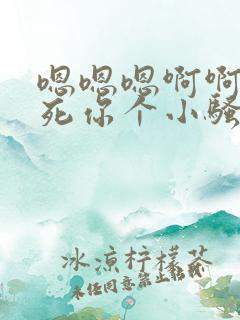 嗯嗯嗯啊啊
死你个小骚
冰凉柠檬茶
未经同意禁止转载